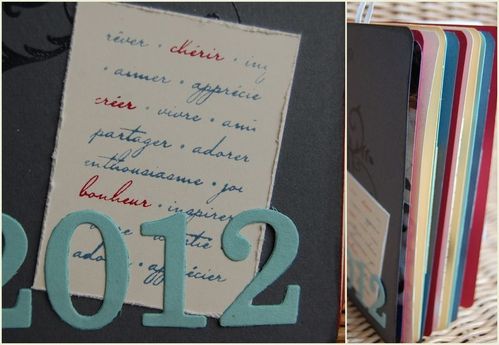 rêver • chérir •
• aimer • apprécie
créer • vivre • ami
partager • adorer
enthousiasme • joi
bonheur • inspirer
• apprécier
2012
12